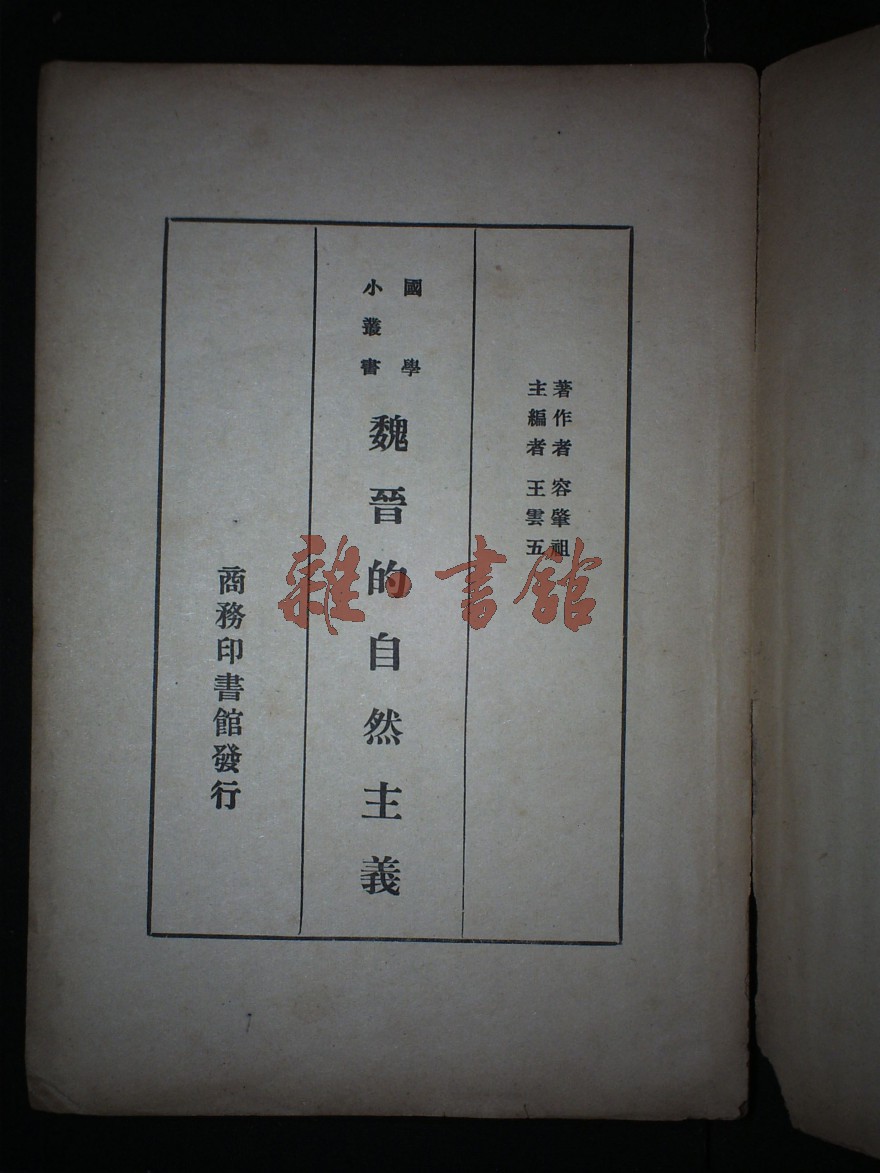 著作者 容肇祖
主編者 王雲五
國學
小叢書
魏晉的自然主義
商務印書館發行
雜·書館